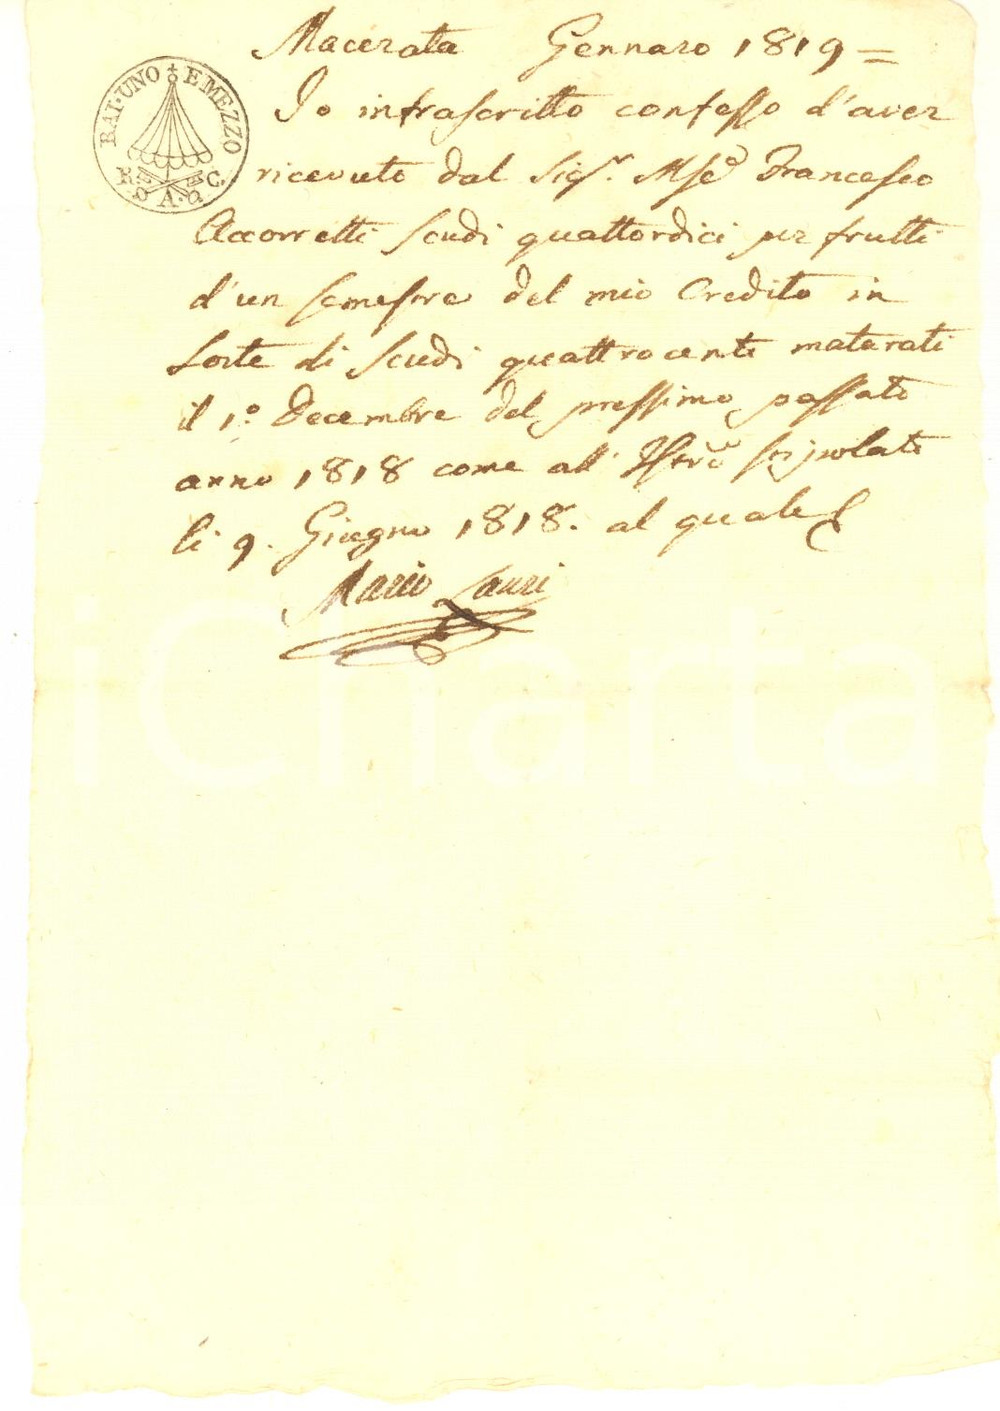 Macerata Gennaro 1819 =
BAI·UNO E MEZZO
R. A. C.
Io infrascritto confesso d'aver
ricevuto dal Sigr. Mse Francesco
Accorretti scudi quattordici per frutti
d'un semestre del mio Credito in
sorte di scudi quattrocento maturati
il 1o. Decembre del prossimo passato
anno 1818 come all' Istro stipolato
li 9. Giugno 1818. al quale
Mario Lauri
iCharta